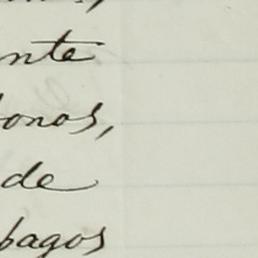 nte
onos,
de
pagos